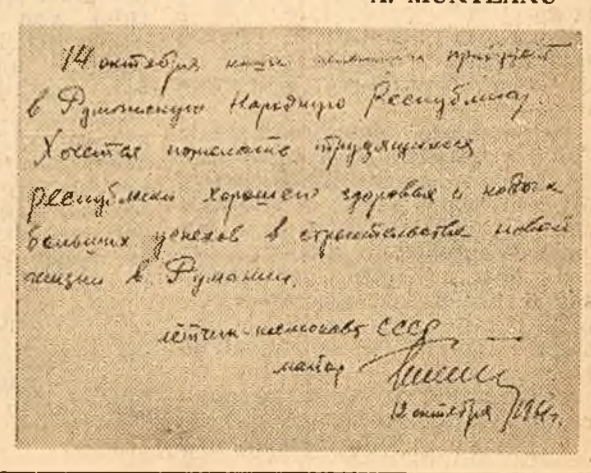 A. MUNTEANU
14 октября наша приедет
в Румынскую Народную Республику.
Хочется пожелать трудящимся
республики хорошего здоровья и новых
больших успехов в строительстве новой
жизни в Румынии.
лётчик-космонавт СССР
майор
12 октября 1961г.